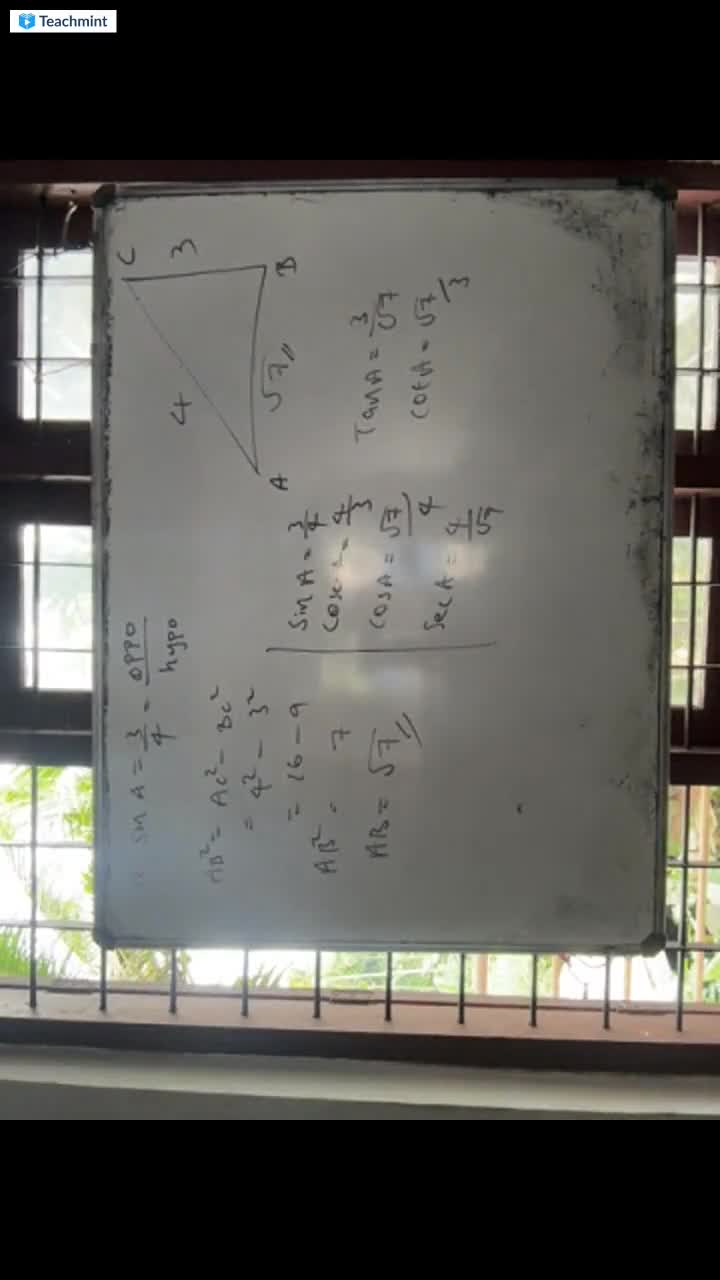 Teachmint
sin A = 3/4 = oppo/hypo
AB² = AC² - BC²
= 4² - 3²
= 16 - 9
AB² = 7
AB = √7
sin A = 3/4
= 4/3
cos A = √7/4
sec A = 4/√7
Tan A = 3/√7
cot A = √7/3
C
3
B
4
√7
A